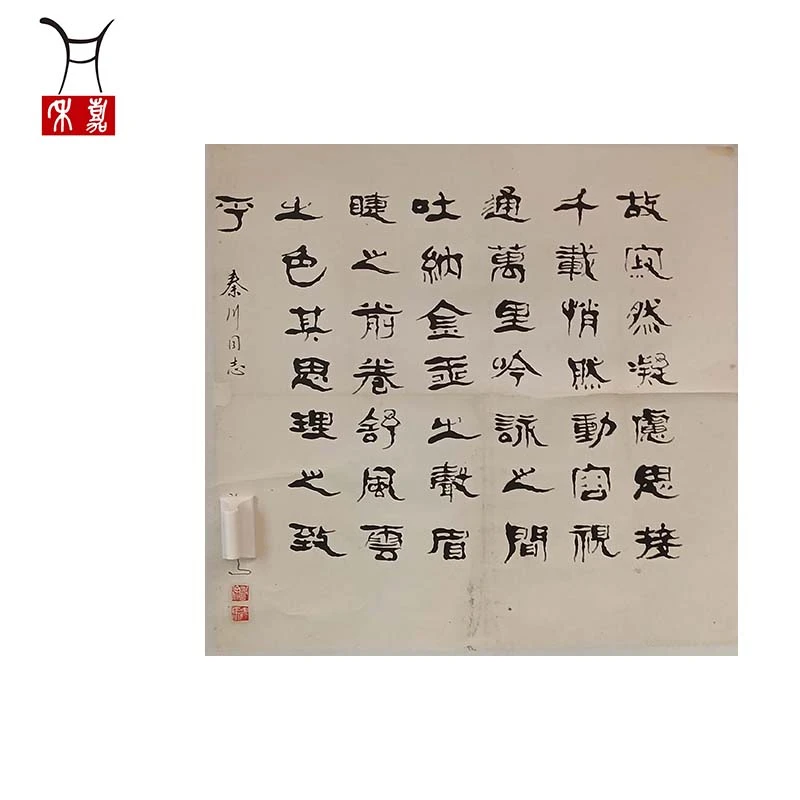 故寂然凝慮思接
千載悄然動容視
通萬里吟詠之間
吐納金玉之聲眉
睫之前卷舒風雲
之色其思理之致
乎
秦川同志